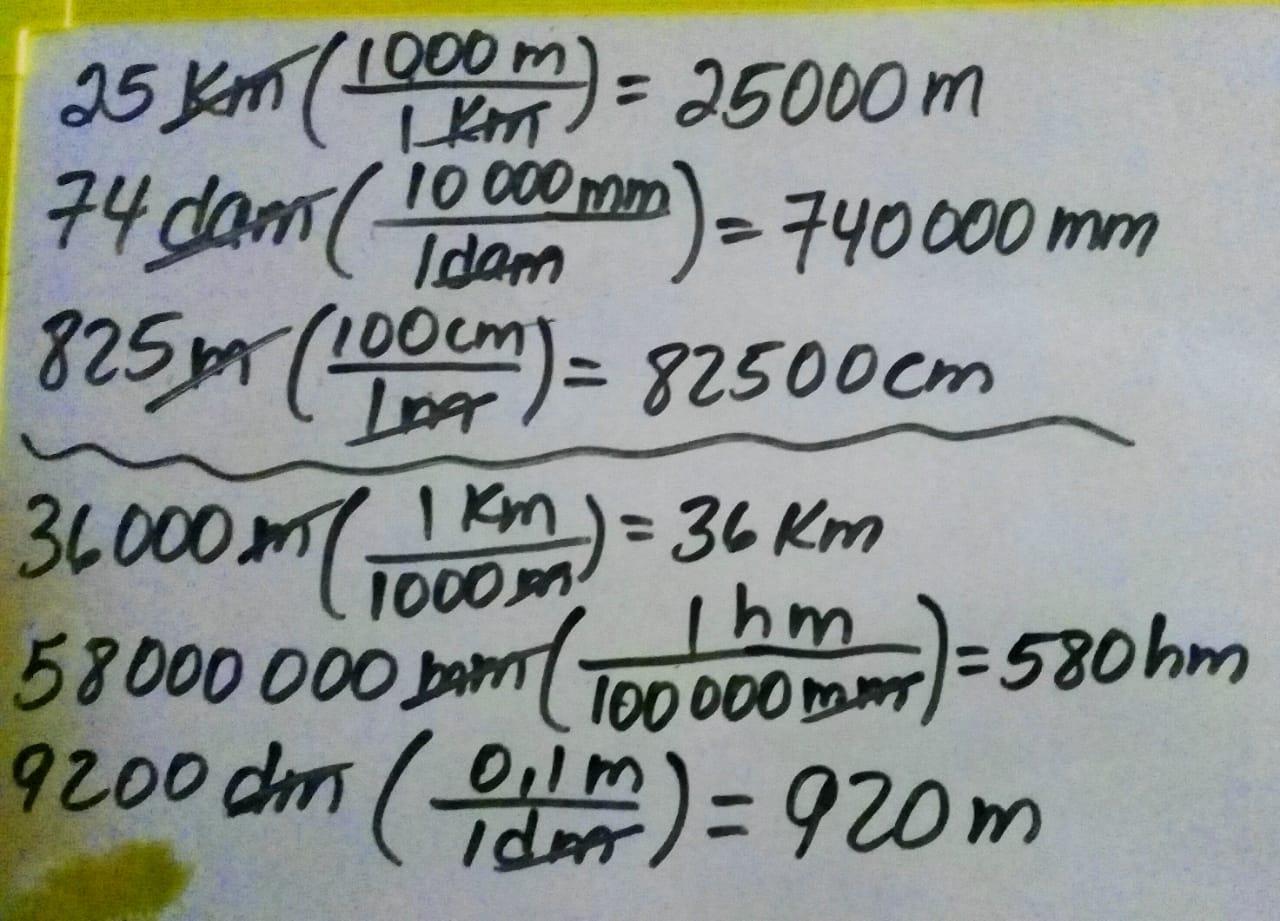 25 Km (1000 m / 1 Km) = 25000 m
74 dam (10 000 mm / 1 dam) = 740 000 mm
825 m (100 cm / 1 m) = 82500 cm
36000 m (1 Km / 1000 m) = 36 Km
58000 000 mm (1 hm / 100 000 mm) = 580 hm
9200 dm (0,1 m / 1 dm) = 920 m